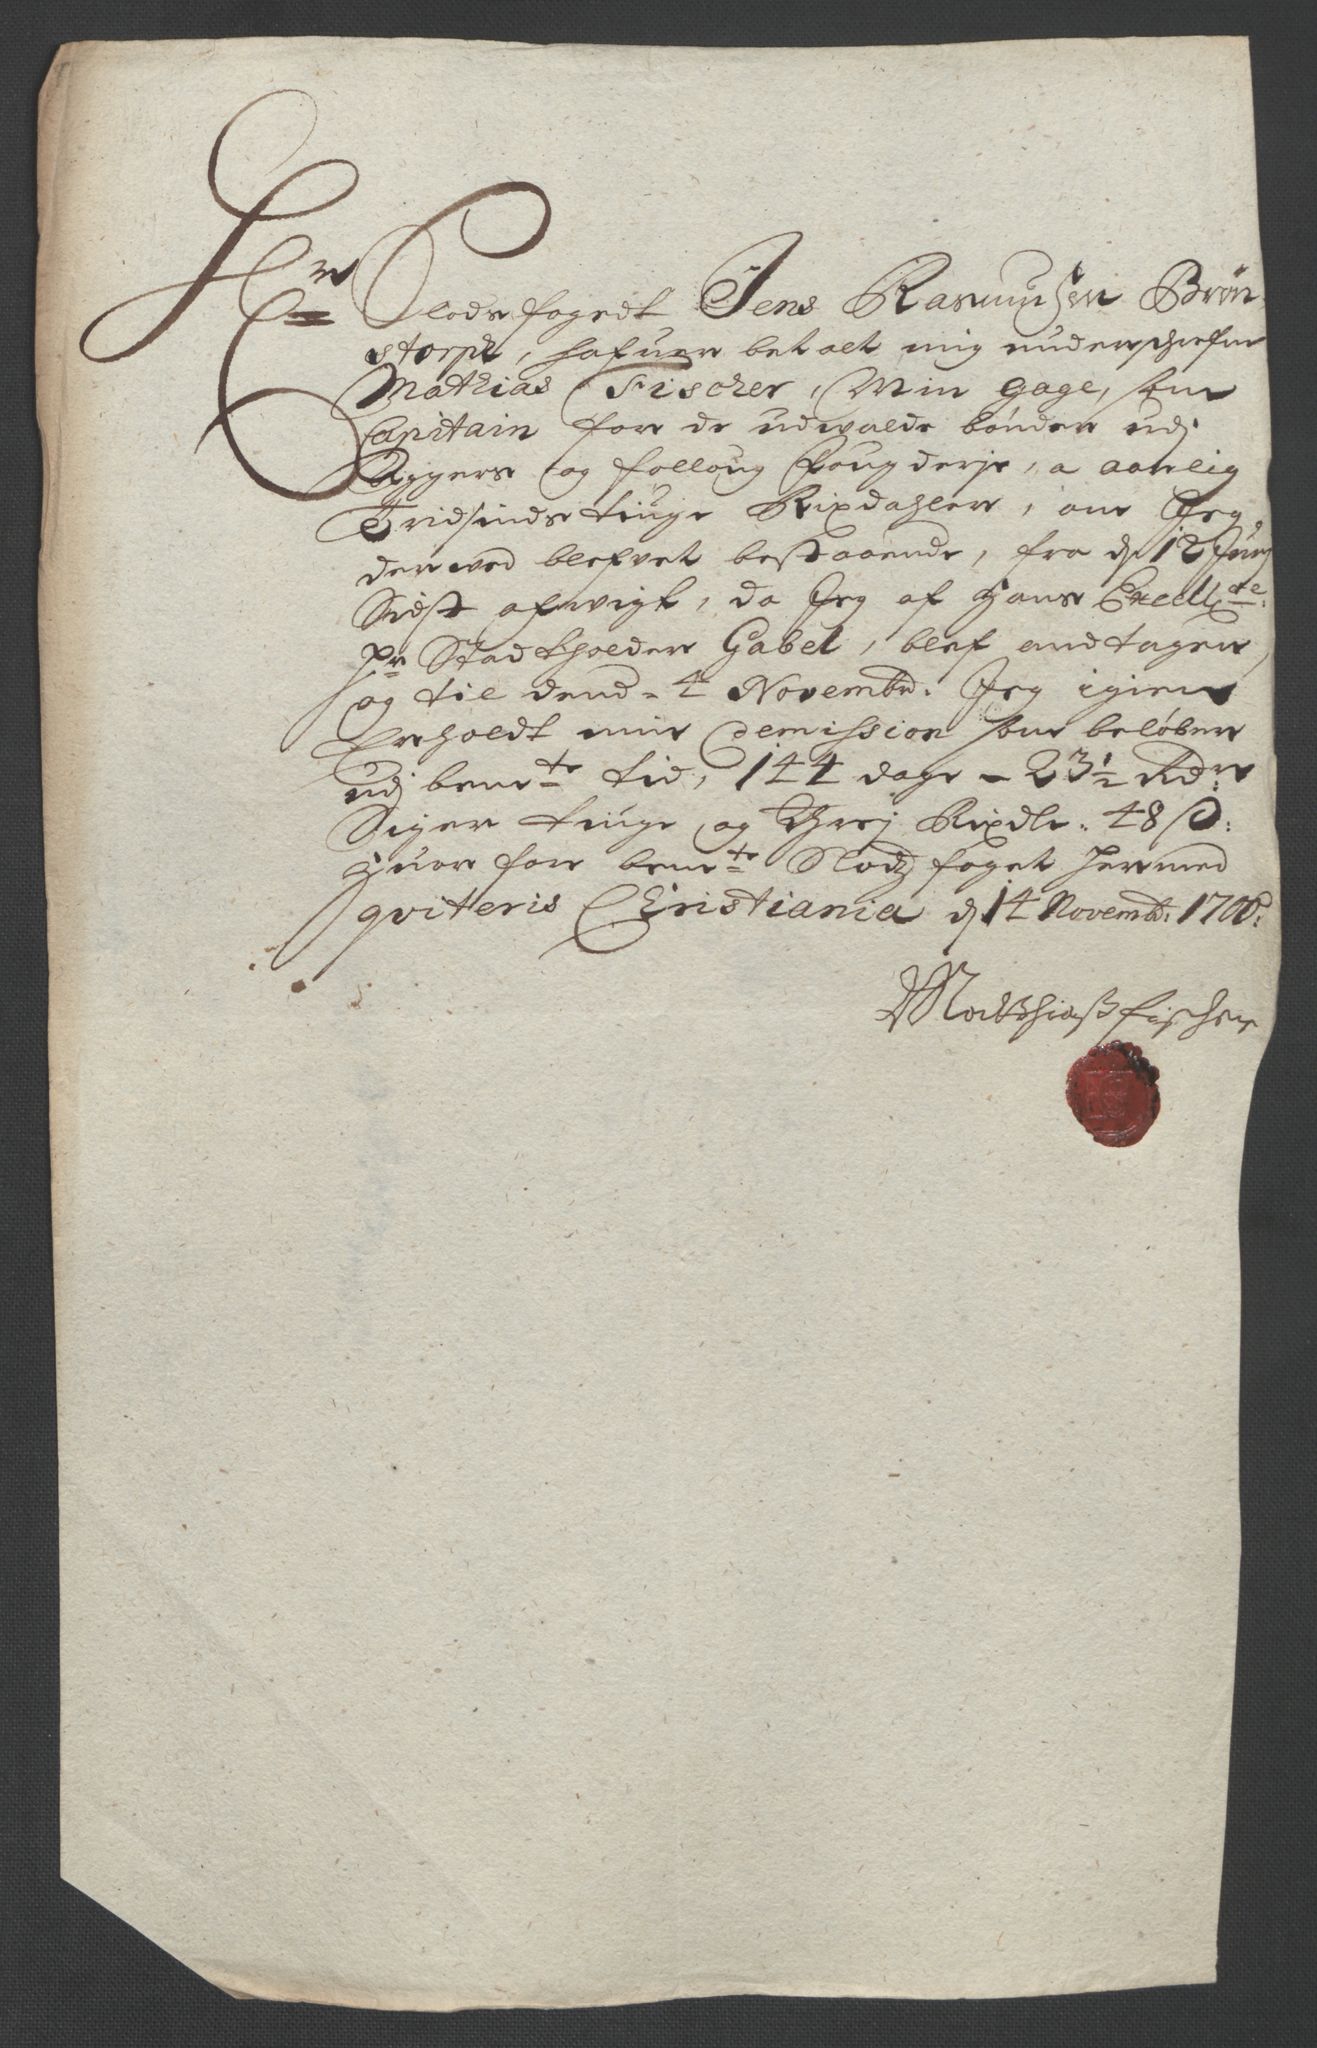 Hr Slodsfogedt Jens Rasmusen Brøn
storph, hafuer betalt mig underschrefne
Mathias Fischer, Min gage, som
Capitain for de udvalde bønder udj
Aggers og folloug fougderje, a aarlig
Tridsindstiuge Rixdahler, som Jeg
derved blefvet bestaaende, fra d 12 Junj
Sidst afvigt, da Jeg af Hans Excell:de
Hr Stadtholder Gabel, blef andtagen,
og til dend 4 Novembr. Jeg igien
Erholdt min demission som beløber
udj bemte tid, 144 dage - 23½ Rdr
Siger tiuge og Threj Rixdlr. 48 s:
Huor for bemte Slodz foget hermed
qviteris Christiania d 14 Novembr: 1700:
Matthiaß fischer